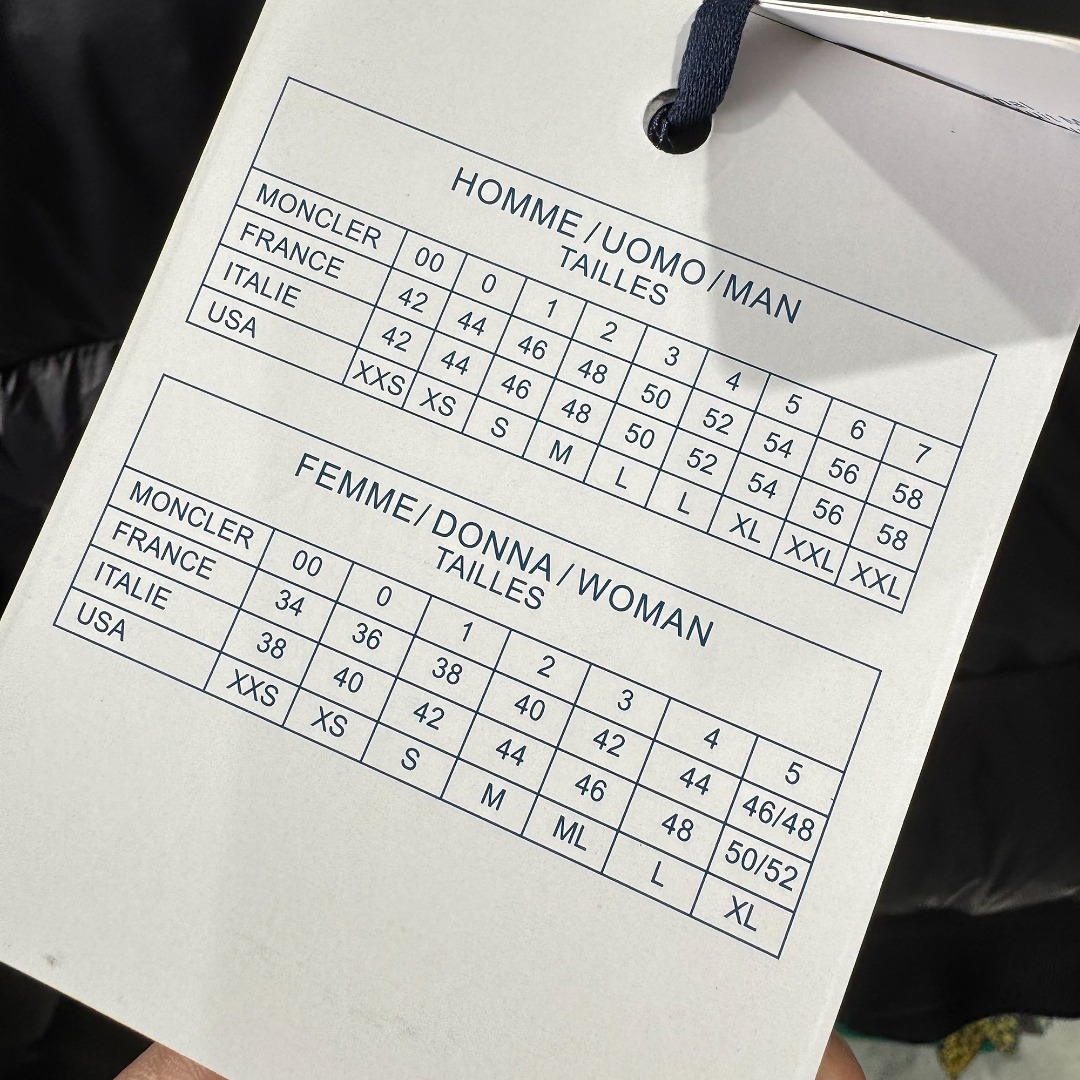 HOMME / UOMO / MAN
TAILLES
MONCLER 00 0 1 2 3 4 5 6 7
FRANCE 42 44 46 48 50 52 54 56 58
ITALIE 42 44 46 48 50 52 54 56 58
USA XXS XS S M L L XL XXL XXL
FEMME / DONNA / WOMAN
TAILLES
MONCLER 00 0 1 2 3 4 5
FRANCE 34 36 38 40 42 44 46/48
ITALIE 38 40 42 44 46 48 50/52
USA XXS XS S M ML L XL